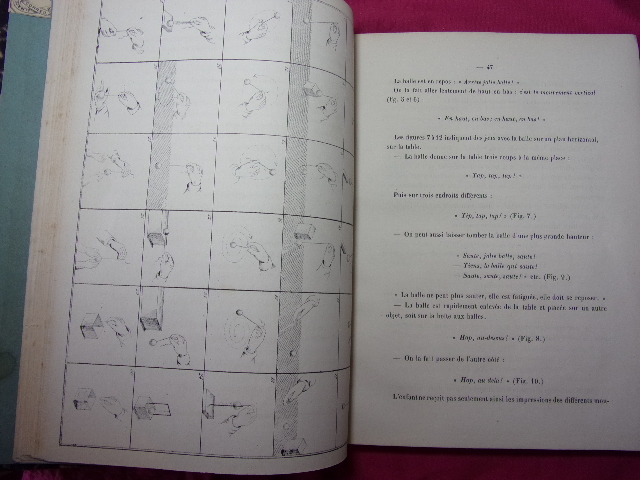 — 47
La balle est en repos : « Arrête jolie balle! »
On la fait aller lentement de haut en bas : c'est le mouvement vertical
(fig. 5 et 6)
« En haut, en bas; en haut, en bas! »
Les figures 7 à 12 indiquent des jeux avec la balle sur un plan horizontal,
sur la table.
— La balle donne sur la table trois coups à la même place :
« Tap, tap, tap! »
Puis sur trois endroits différents :
« Tap, tap, tap! » (Fig. 7.)
— On peut aussi laisser tomber la balle d'une plus grande hauteur :
« Saute, jolie balle, saute!
— Tiens, la balle qui saute!
— Saute, saute, saute! » etc. (Fig. 2.)
« La balle ne peut plus sauter, elle est fatiguée, elle doit se reposer. »
— La balle est rapidement enlevée de la table et placée sur un autre
objet, soit sur la boîte aux balles.
« Hop, au-dessus! » (Fig. 9.)
— On la fait passer de l'autre côté :
« Hop, au delà! » (Fig. 10.)
L'enfant ne reçoit pas seulement ainsi les impressions des différents mou-